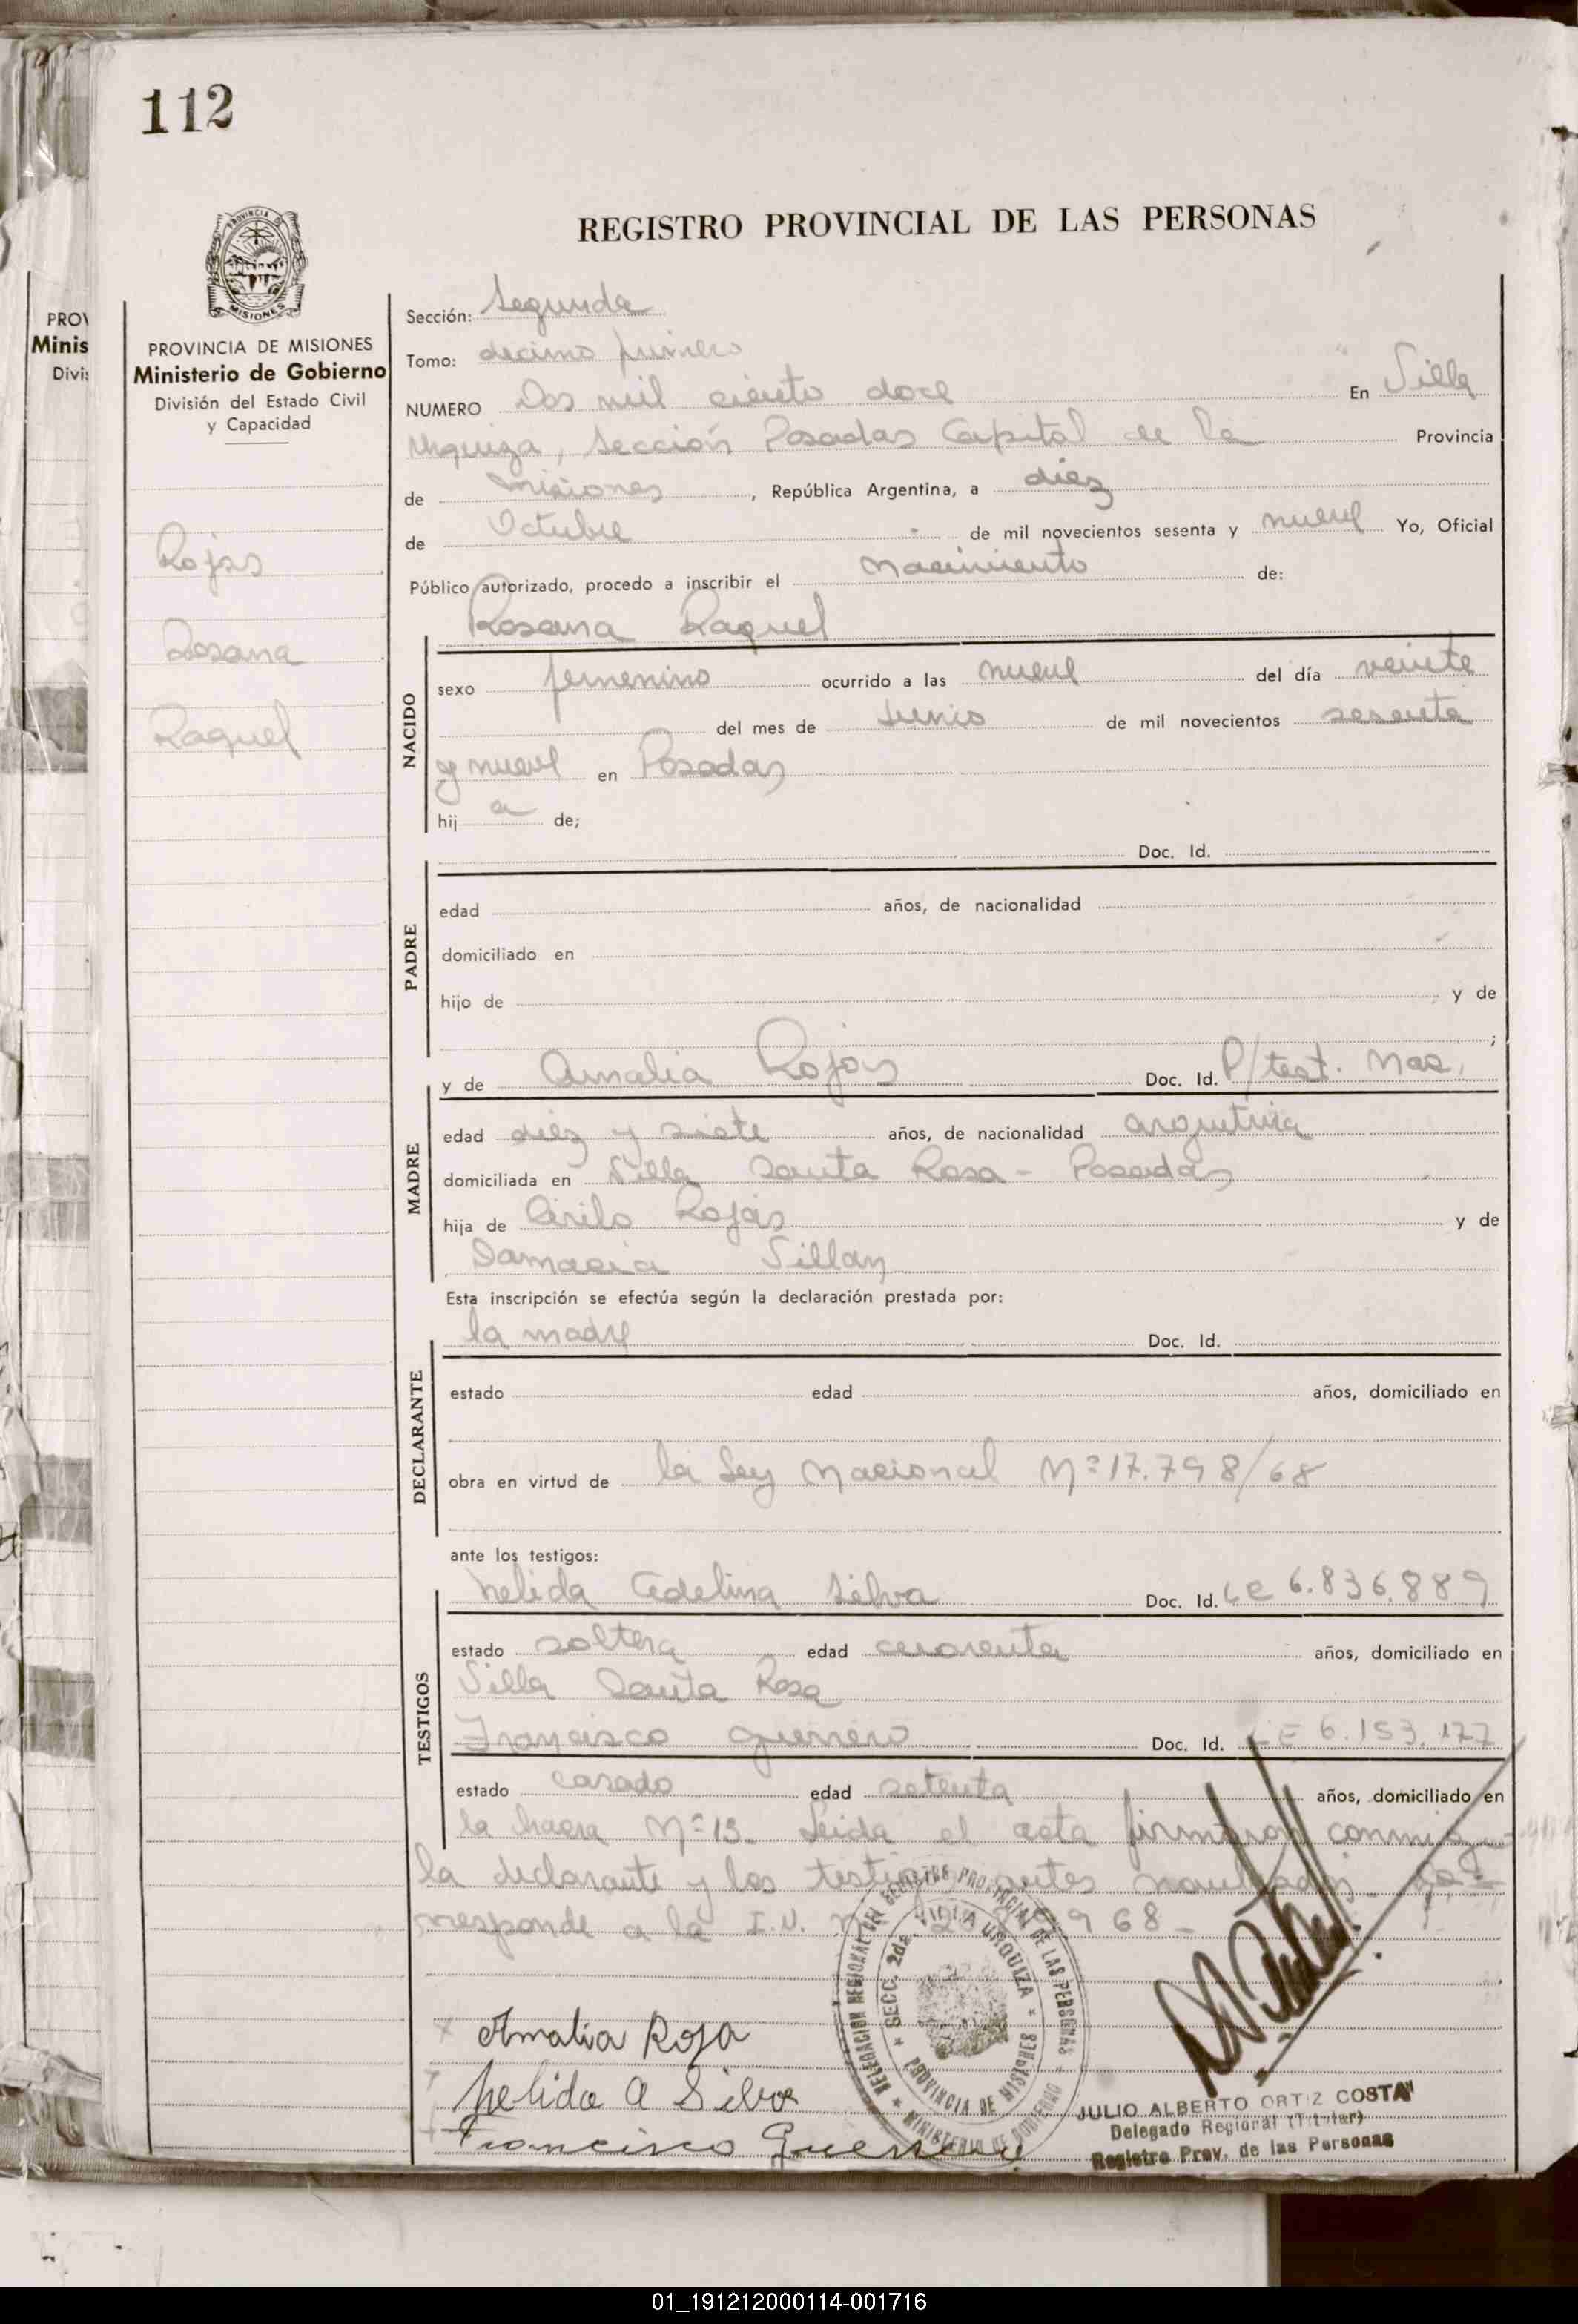 112
REGISTRO PROVINCIAL DE LAS PERSONAS
PROVINCIA DE MISIONES
Ministerio de Gobierno
División del Estado Civil
y Capacidad
Rojas
Rosana
Raquel
Sección: Segunda
Tomo: decimo primero
NUMERO Dos mil ciento doce En Villa
Urquiza, Sección Posadas Capital de la Provincia
de Misiones, República Argentina, a diez
de Octubre de mil novecientos sesenta y nueve Yo, Oficial
Público autorizado, procedo a inscribir el nacimiento de:
Rosana Raquel
NACIDO
sexo femenino ocurrido a las nueve del día veinte
del mes de Junio de mil novecientos sesenta
y nueve en Posadas
hij a de;
Doc. Id.
PADRE
edad años, de nacionalidad
domiciliado en
hijo de y de
;
y de Amalia Rojas Doc. Id. P/test. Nac.
MADRE
edad diez y siete años, de nacionalidad argentina
domiciliada en Villa Santa Rosa - Posadas
hija de Cirilo Rojas y de
Damacia Villan
Esta inscripción se efectúa según la declaración prestada por:
la madre Doc. Id.
DECLARANTE
estado edad años, domiciliado en
obra en virtud de la Ley Nacional Nº 17.798/68
ante los testigos:
TESTIGOS
Nelida Adelina Silva Doc. Id. LC 6.836.889
estado soltera edad cuarenta años, domiciliado en
Villa Santa Rosa
Francisco Guerrero Doc. Id. LE 6.153.177
estado casado edad setenta años, domiciliado en
la chacra Nº 13. Leida el acta firmaron conmigo
la declarante y los testigos antes nombrados. Co-
rresponde a la I.N. 968-
Amalia Roja
Nelida A Silva
Francisco Guerrero
DELEGACION REGIONAL DEL REGISTRO PROVINCIAL DE LAS PERSONAS
MINISTERIO DE GOBIERNO
SECC. 2da. VILLA URQUIZA
PROVINCIA DE MISIONES
JULIO ALBERTO ORTIZ COSTA
Delegado Regional (Titular)
Registro Prov. de las Personas
01_191212000114-001716